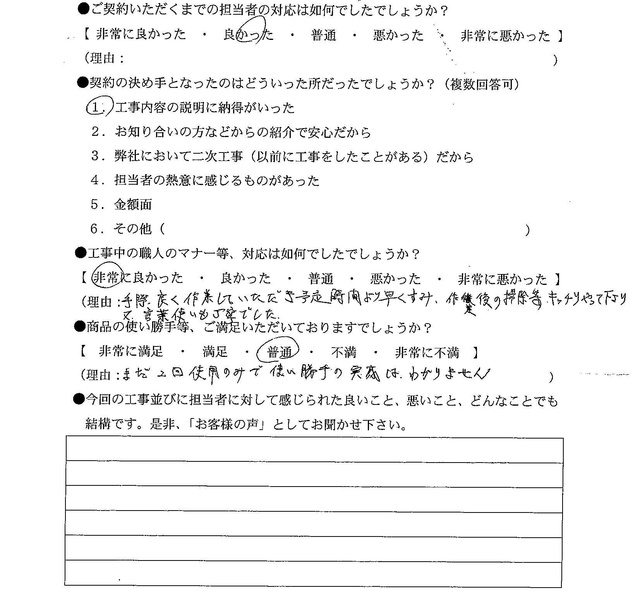 ●ご契約いただくまでの担当者の対応は如何でしたでしょうか？
【 非常に良かった ・ 良かった ・ 普通 ・ 悪かった ・ 非常に悪かった 】
（理由： ）
●契約の決め手となったのはどういった所だったでしょうか？（複数回答可）
１．工事内容の説明に納得がいった
２．お知り合いの方などからの紹介で安心だから
３．弊社において二次工事（以前に工事をしたことがある）だから
４．担当者の熱意に感じるものがあった
５．金額面
６．その他（ ）
●工事中の職人のマナー等、対応は如何でしたでしょうか？
【 非常に良かった ・ 良かった ・ 普通 ・ 悪かった ・ 非常に悪かった 】
（理由：手際良く作業していただき予定時間より早くすみ、作業後の掃除等キッチリやって下さり
又、言葉使いも丁寧でした。
●商品の使い勝手等、ご満足いただいておりますでしょうか？
【 非常に満足 ・ 満足 ・ 普通 ・ 不満 ・ 非常に不満 】
（理由：まだ２回使用のみで使い勝手の実感は、わかりません ）
●今回の工事並びに担当者に対して感じられた良いこと、悪いこと、どんなことでも
結構です。是非、「お客様の声」としてお聞かせ下さい。